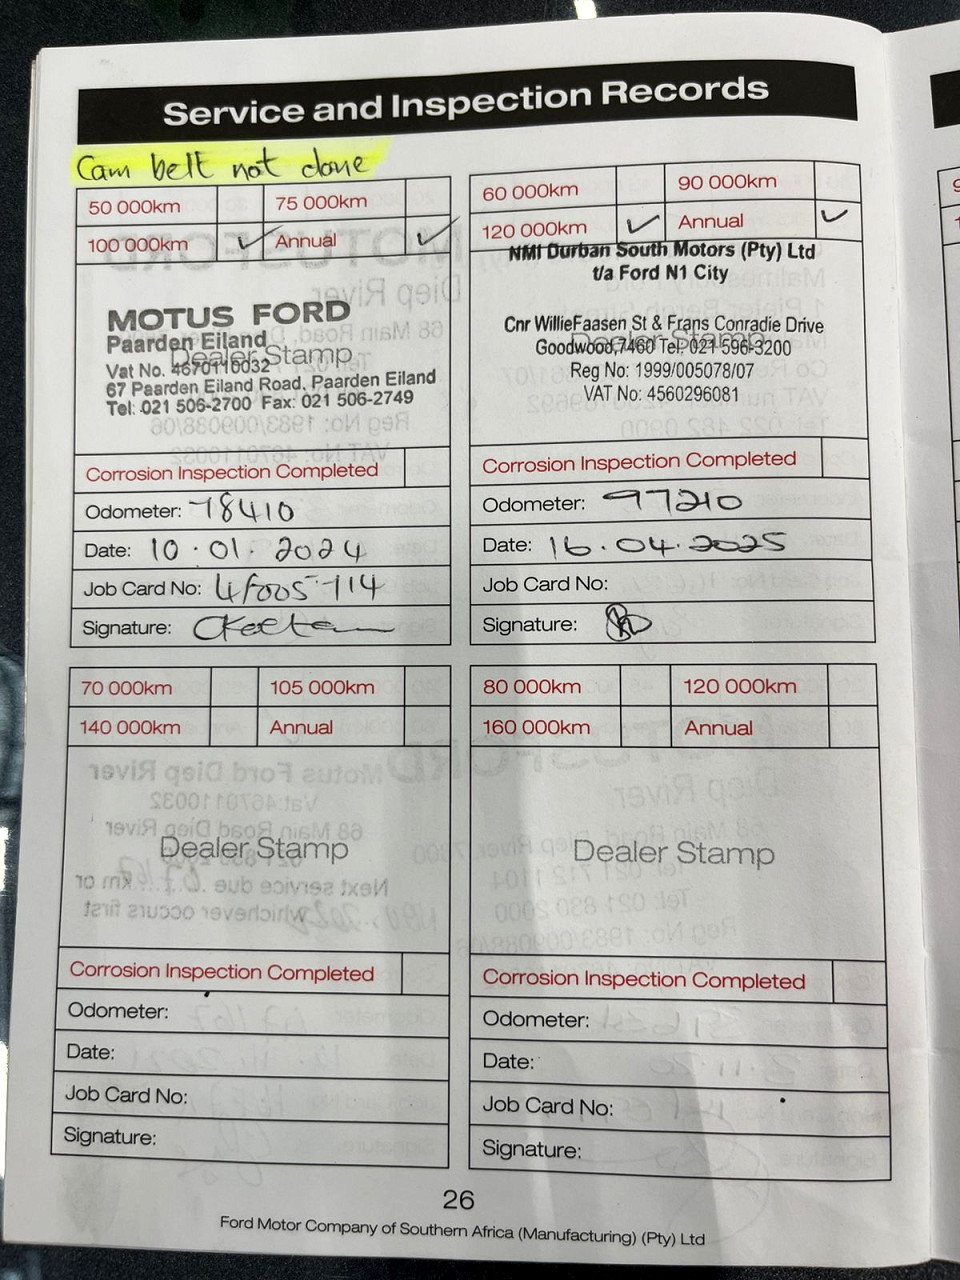 Service and Inspection Records
Cam belt not done
50 000km 75 000km
100 000km ✓ Annual ✓
MOTUS FORD
Paarden Eiland
Dealer Stamp
Vat No. 4670110032
67 Paarden Eiland Road, Paarden Eiland
Tel: 021 506-2700 Fax: 021 506-2749
Corrosion Inspection Completed
Odometer: 78410
Date: 10.01.2024
Job Card No:
Signature:
60 000km 90 000km
120 000km ✓ Annual ✓
NMI Durban South Motors (Pty) Ltd
t/a Ford N1 City
Cnr WillieFaasen St & Frans Conradie Drive
Dealer Stamp
Goodwood,7460 Tel: 021 596-3200
Reg No: 1999/005078/07
VAT No: 4560296081
Corrosion Inspection Completed
Odometer: 97210
Date: 16.04.2025
Job Card No:
Signature:
70 000km 105 000km
140 000km Annual
Dealer Stamp
Corrosion Inspection Completed
Odometer:
Date:
Job Card No:
Signature:
80 000km 120 000km
160 000km Annual
Dealer Stamp
Corrosion Inspection Completed
Odometer:
Date:
Job Card No:
Signature:
26
Ford Motor Company of Southern Africa (Manufacturing) (Pty) Ltd